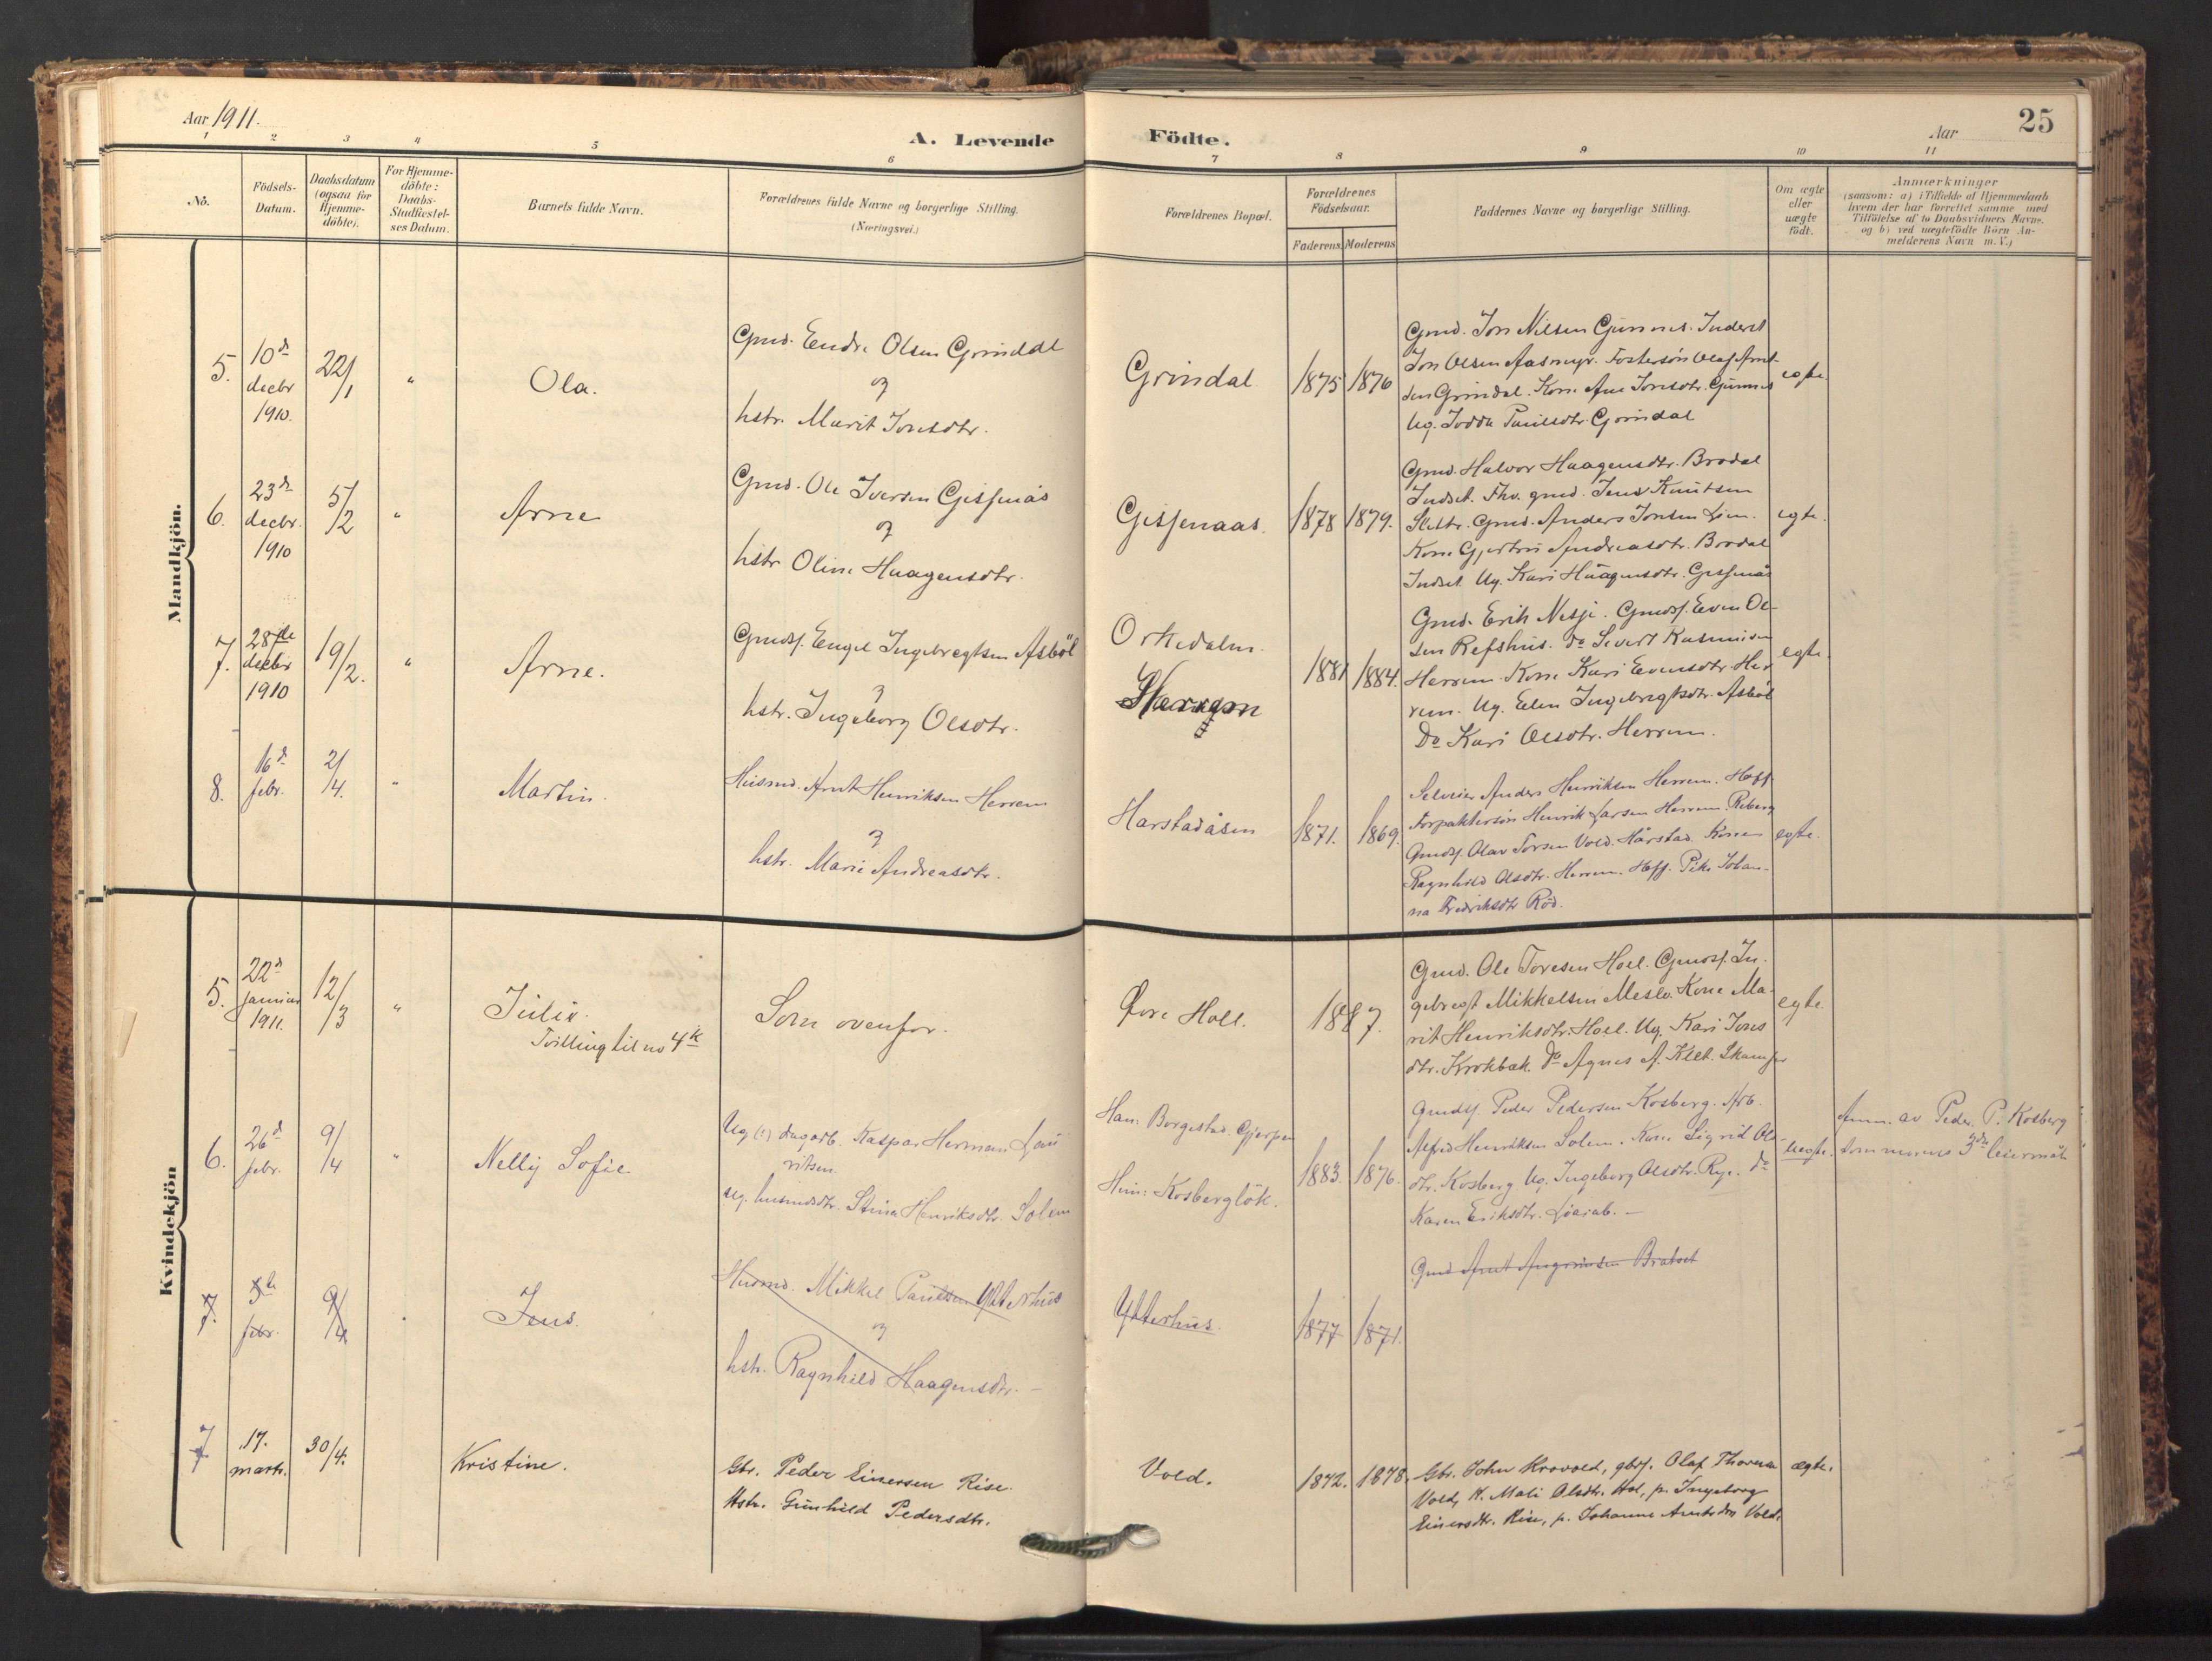 Aar 1911.
A. Levende Födte.
Aar
25
1 2 3 4 5 6 7 8 9 10 11
No.
Födsels-
Datum.
Daabsdatum
(ogsaa for
Hjemme-
döbte).
For Hjemme-
döbte:
Daabs-
Stadfæstel-
ses Datum.
Barnets fulde Navn.
Forældrenes fulde Navne og borgerlige Stilling.
(Næringsvei.)
Forældrenes Bopæl.
Forældrenes
Födselsaar.
Faderens. Moderens.
Faddernes Navne og borgerlige Stilling.
Om ægte
eller
uægte
födt.
Anmærkninger
(saasom: a) i Tilfælde af Hjemmedaab
hvem der har forrettet samme med
Tilföielse af to Daabsvidners Navne.
og b) ved uægtefödte Börn An-
melderens Navn m. V.)
Mandkjön.
5.
10de
decbr
1910.
22/1
"
Ola.
Gmd. Endre Olsen Grindal
og
hstr. Marit Jonsdtr.
Grindal
1875 1876
Gmd. Jon Nilsen Gunnes. Inderst
Jon Olsen Aasmyr. Fostersön Olaf Arnt-
sen Grindal. Kone Ane Jonsdtr. Gunnes
Ug. Jodda Paulsdtr. Grindal
egte.
6.
23de
decbr.
1910
5/2
"
Arne
Gmd. Ole Iversen Gisfnaas
og
hstr Oline Haagensdtr.
Gisfenaas.
1878 1879.
Gmd. Halvor Haagensdtr. Brodal
Indset. Fhv. gmd. Jens Knutsen
Slettr. Gmd. Anders Jonsen Lien.
Kone Gjertru Andreasdtr. Brodal
Indset. Ug. Kari Haagensdtr. Gisfnaas
egte.
7.
28de
decbr
1910
19/2.
"
Arne.
Gmdsf. Engel Ingebregtsen Asböl
og
hstr. Ingeborg Olsdtr.
Orkedalen.
Herrem
1881 1884.
Gmd. Erik Nesje. Gmdsf. Even Ol-
sen Refshus. Do Sivert Rasmusen
Herrem. Kone Kari Evensdtr Her
rem. Ug. Elen Ingebregtsdtr. Asböl
Do Kari Olsdtr. Herrem.
egte.
8.
16de
febr.
2/4.
"
Martin.
Husmd. Arnt Henriksen Herrem
og
hstr. Marie Andreasdtr.
Harstadåsen
1871. 1869.
Selveier Anders Henriksen Herrem. Hoff.
Forpaktersön Henrik Larsen Herrem. Reberg
Gmdsf. Olav Torsen Vold. Hårstad. Konen
Ragnhild Olsdtr. Herrem. Hoff. Pike Johan-
na Fredriksdtr Röd.
egte.
Kvindekjön
5.
22de
januar
1911.
12/3
"
Julie.
Tvilling til no 4k
Som ovenfor.
Øvre Hoel.
1887.
Gmd. Ole Toresen Hoel. Gmdsf. In-
gebregt Mikkelsen Meslo. Kone Ma-
rit Henriksdtr. Hoel. Ug. Kari Jons
dtr. Krokbak. Do Agnes A. Klet. Skamfer
egte.
6.
26de
febr.
9/4
"
Nelly Sofie
Ug (?) dagarb. Kaspar Herman Lau
ritsen.
ug. husmdsdtr. Stina Henriksdtr. Solem
Han: Borgestad. Gjerpen
Hun: Kosberglök.
1883. 1876.
Gmdsf. Peder Pedersen Kosberg. Arb.
Alfred Henriksen Solem. Kone Sigrid Ols-
dtr. Kosberg. Ug. Ingeborg Olsdtr. Rye. do
Karen Eriksdtr.
uegte.
Anm. av Peder P. Kosberg
som mores 3die leiermål
7.
3de
febr.
9/4
Jens.
Husmd. Mikkel Paulsen Ytterhus
og
hstr. Ragnhild Haagensdtr.
Ytterhus.
1877 1871.
Gmd Arnt Angrimsen Bratset
7
17.
marts.
30/4.
Kristine.
Gbr. Peder Einersen Rise.
Hstr. Gunhild Pedersdtr.
Vold.
1872. 1878.
Gbr. John Krovold, gbrf. Olaf Thoresen
Vold, K. Mali Olsdtr. Hol, p. Ingeborg
Einersdtr. Rise, p. Johanne Arntsdtr Vold.
ægte.